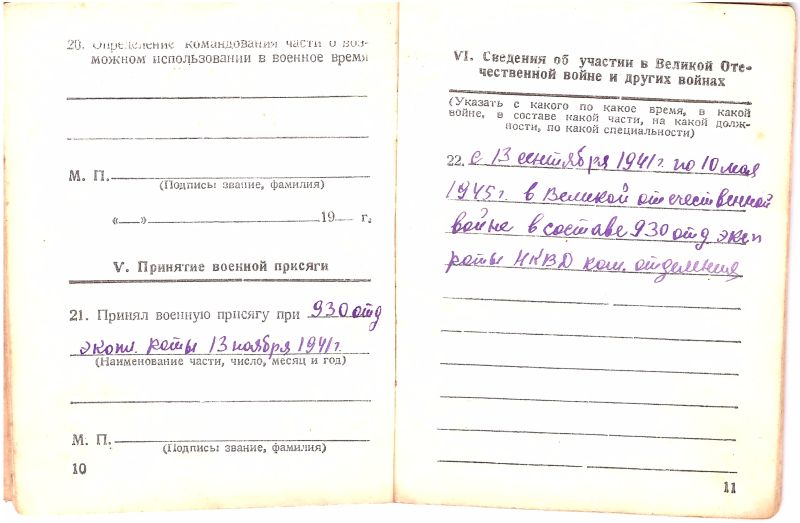 20. Определение командования части о воз-
можном использовании в военное время
М. П.
(Подписы звание, фамилия)
«—» 19— г.
V. Принятие военной прксяги
21. Принял военную присягу при 930 отд
экспл. роты 13 ноября 1941 г.
(Наименование части, число, месяц и год)
М. П.
(Подписы звание, фамилия)
10
VI. Сведения об участии в Великой Оте-
чественной войне и других войнах
(Указать с какого по какое время, в какой
войне, в составе какой части, на какой долж-
ности, по какой специальности)
22. с 13 сентября 1941 г. по 10 мая
1945 г. в Великой отечественной
войне в составе 930 отд эксп
роты НКВД ком. отделения
11